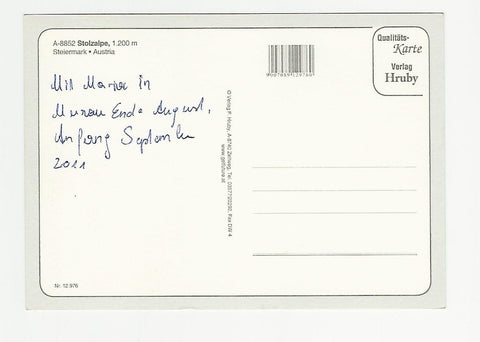 A-8852 Stolzalpe, 1.200 m
Steiermark • Austria
Mit Maria in
Murau Ende August,
Anfang September
2011
Nr. 12 976
9007859129760
© Verlag F. Hruby, A-8740 Zeltweg, Tel.
www.golfuhre.at
Qualitäts-
Karte
Verlag
Hruby